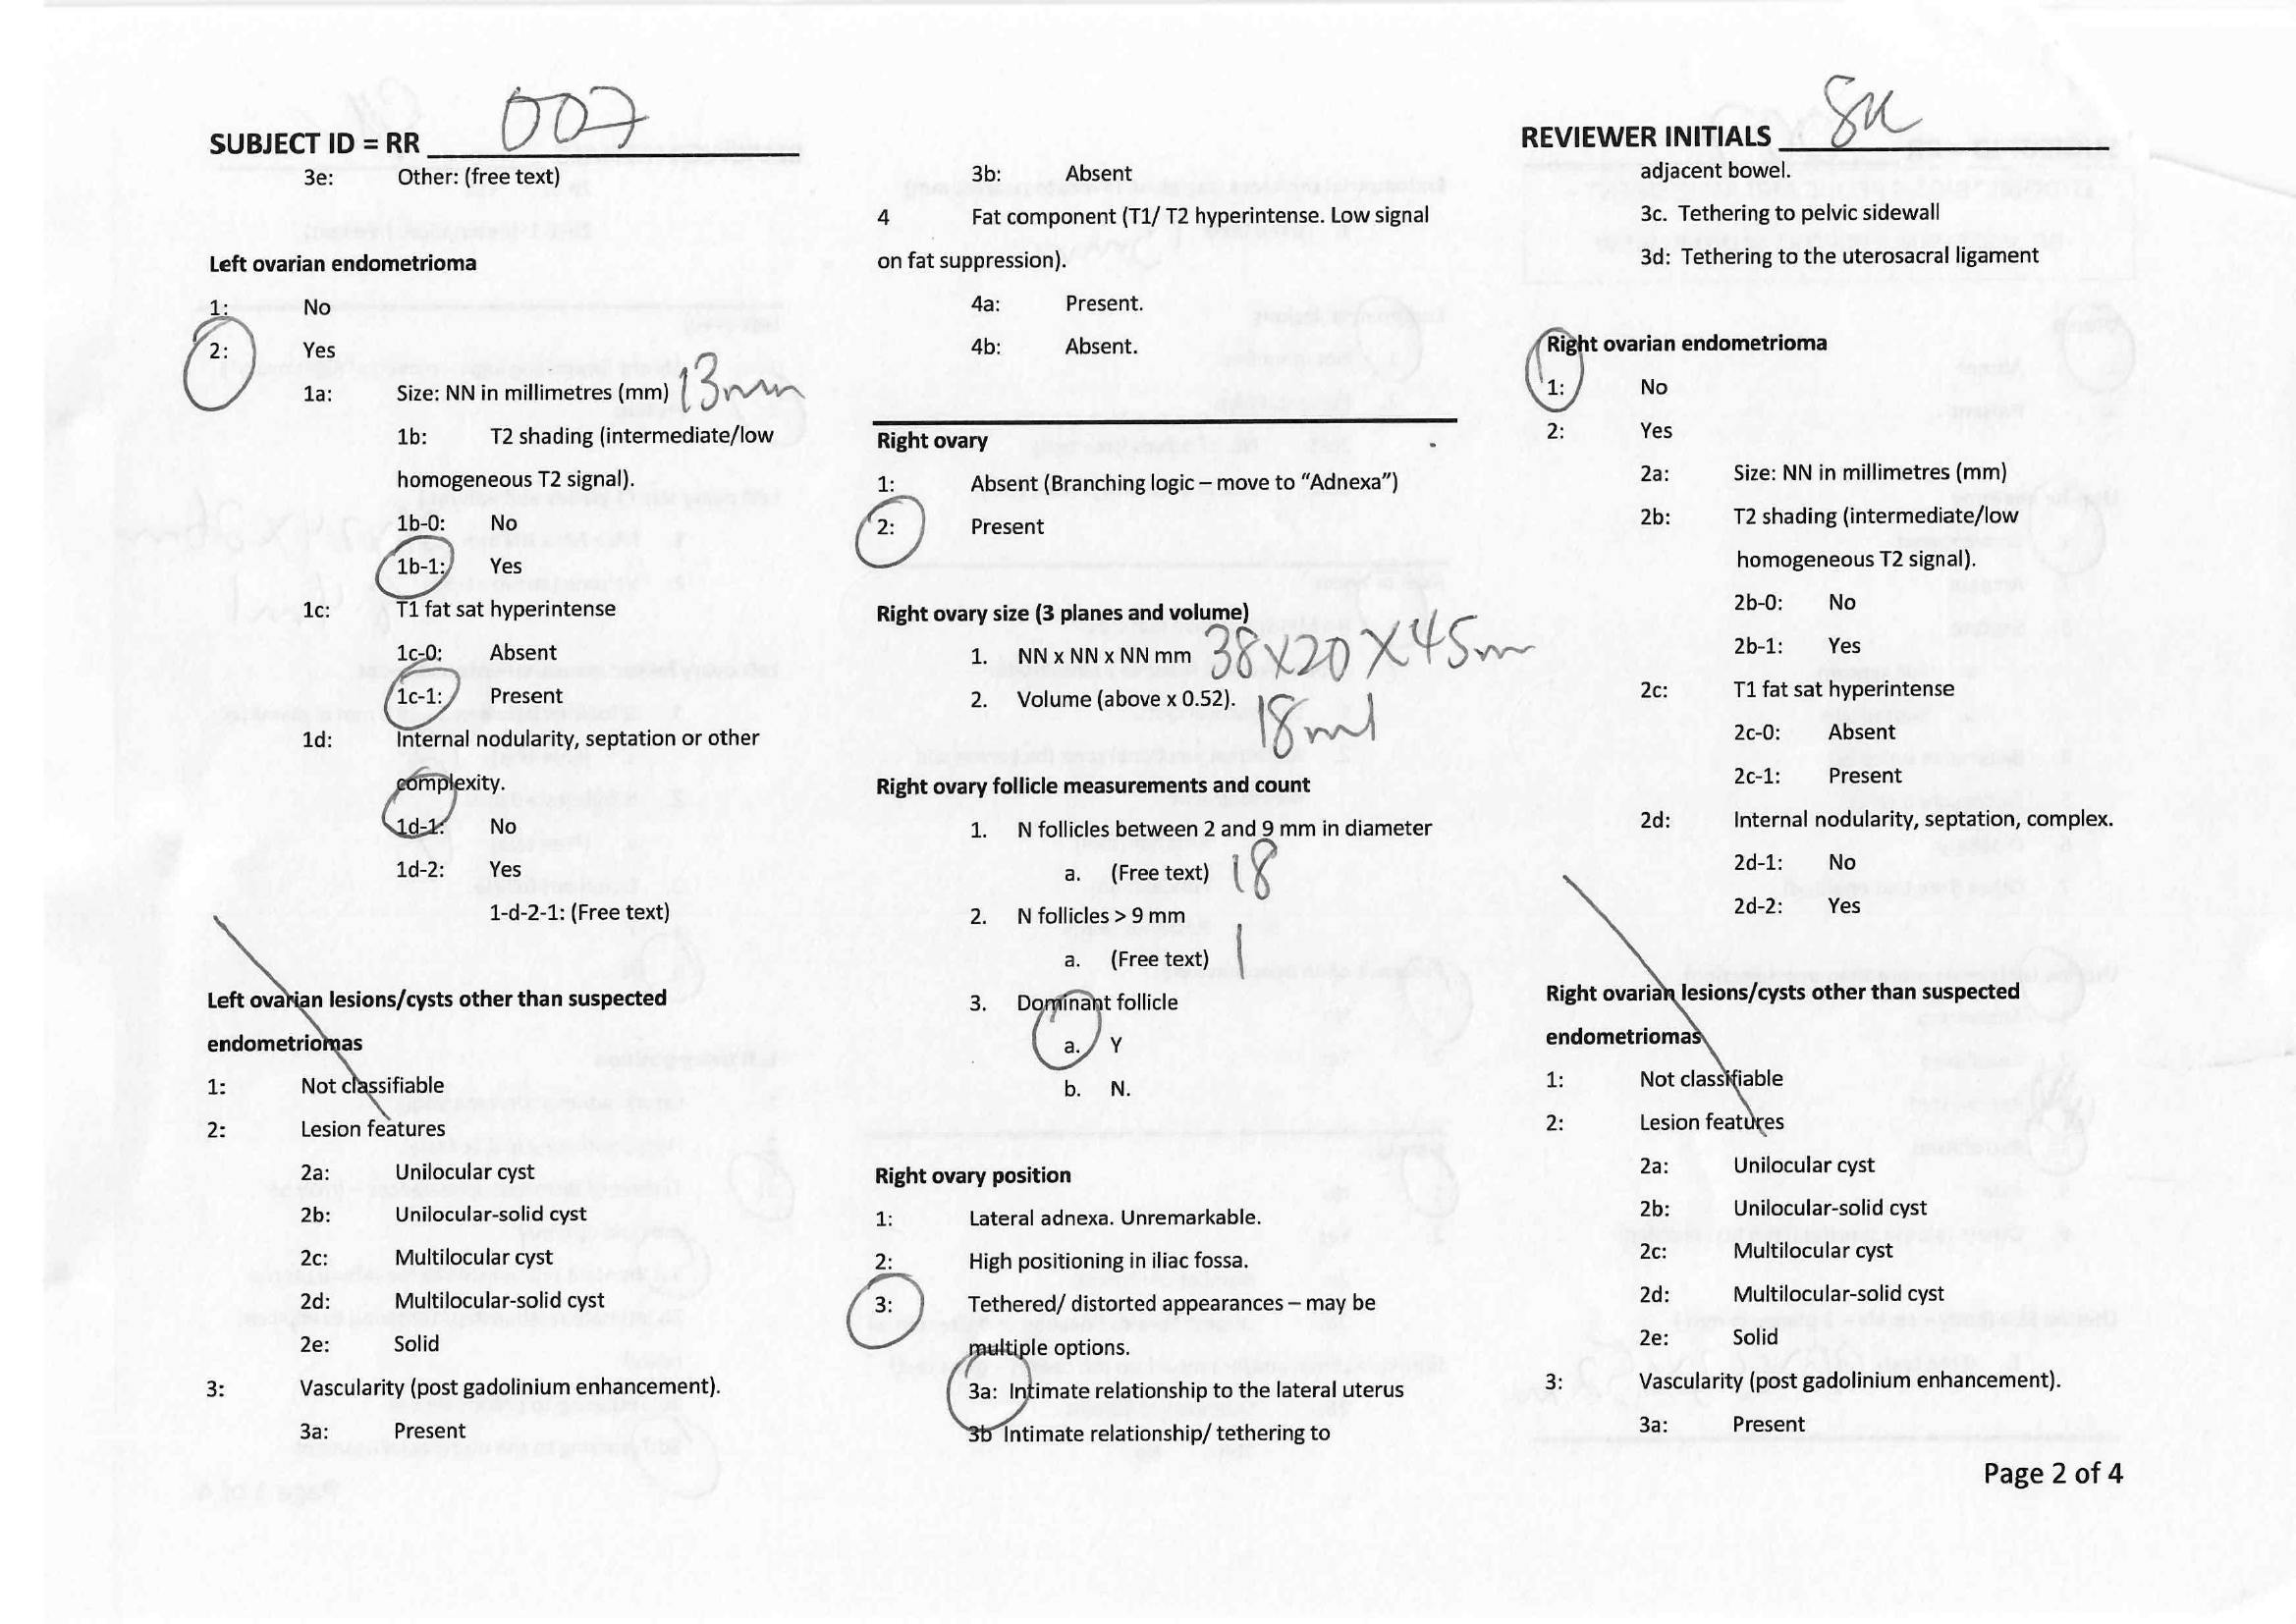 SUBJECT ID = RR 007
3e: Other: (free text)
Left ovarian endometrioma
1: No
2: Yes
1a: Size: NN in millimetres (mm) 13mm
1b: T2 shading (intermediate/low
homogeneous T2 signal).
1b-0: No
1b-1: Yes
1c: T1 fat sat hyperintense
1c-0: Absent
1c-1: Present
1d: Internal nodularity, septation or other
complexity.
1d-1: No
1d-2: Yes
1-d-2-1: (Free text)
Left ovarian lesions/cysts other than suspected
endometriomas
1: Not classifiable
2: Lesion features
2a: Unilocular cyst
2b: Unilocular-solid cyst
2c: Multilocular cyst
2d: Multilocular-solid cyst
2e: Solid
3: Vascularity (post gadolinium enhancement).
3a: Present
3b: Absent
4 Fat component (T1/ T2 hyperintense. Low signal
on fat suppression).
4a: Present.
4b: Absent.
Right ovary
1: Absent (Branching logic – move to “Adnexa”)
2: Present
Right ovary size (3 planes and volume)
1. NN x NN x NN mm 38x20x45m
2. Volume (above x 0.52). 18ml
Right ovary follicle measurements and count
1. N follicles between 2 and 9 mm in diameter
a. (Free text) 18
2. N follicles > 9 mm
a. (Free text) 1
3. Dominant follicle
a. Y
b. N.
Right ovary position
1: Lateral adnexa. Unremarkable.
2: High positioning in iliac fossa.
3: Tethered/ distorted appearances – may be
multiple options.
3a: Intimate relationship to the lateral uterus
3b Intimate relationship/ tethering to
REVIEWER INITIALS
adjacent bowel.
3c. Tethering to pelvic sidewall
3d: Tethering to the uterosacral ligament
Right ovarian endometrioma
1: No
2: Yes
2a: Size: NN in millimetres (mm)
2b: T2 shading (intermediate/low
homogeneous T2 signal).
2b-0: No
2b-1: Yes
2c: T1 fat sat hyperintense
2c-0: Absent
2c-1: Present
2d: Internal nodularity, septation, complex.
2d-1: No
2d-2: Yes
Right ovarian lesions/cysts other than suspected
endometriomas
1: Not classifiable
2: Lesion features
2a: Unilocular cyst
2b: Unilocular-solid cyst
2c: Multilocular cyst
2d: Multilocular-solid cyst
2e: Solid
3: Vascularity (post gadolinium enhancement).
3a: Present
Page 2 of 4